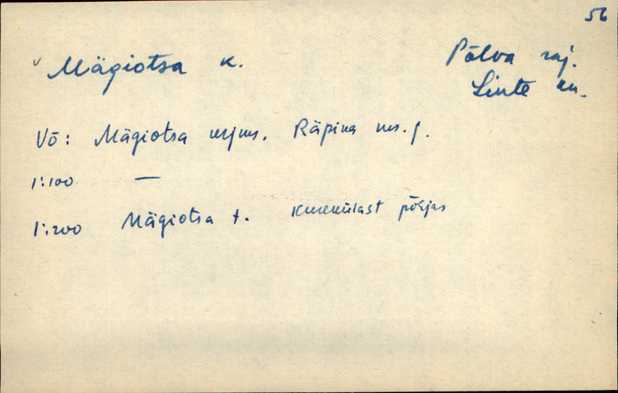 56
Mägiotsa k.
Põlva raj.
Linte kn.
Võ: Mägiotsa Räpina
1:100 —
1:200 Mägiotsa t. Kureküilast põhjas